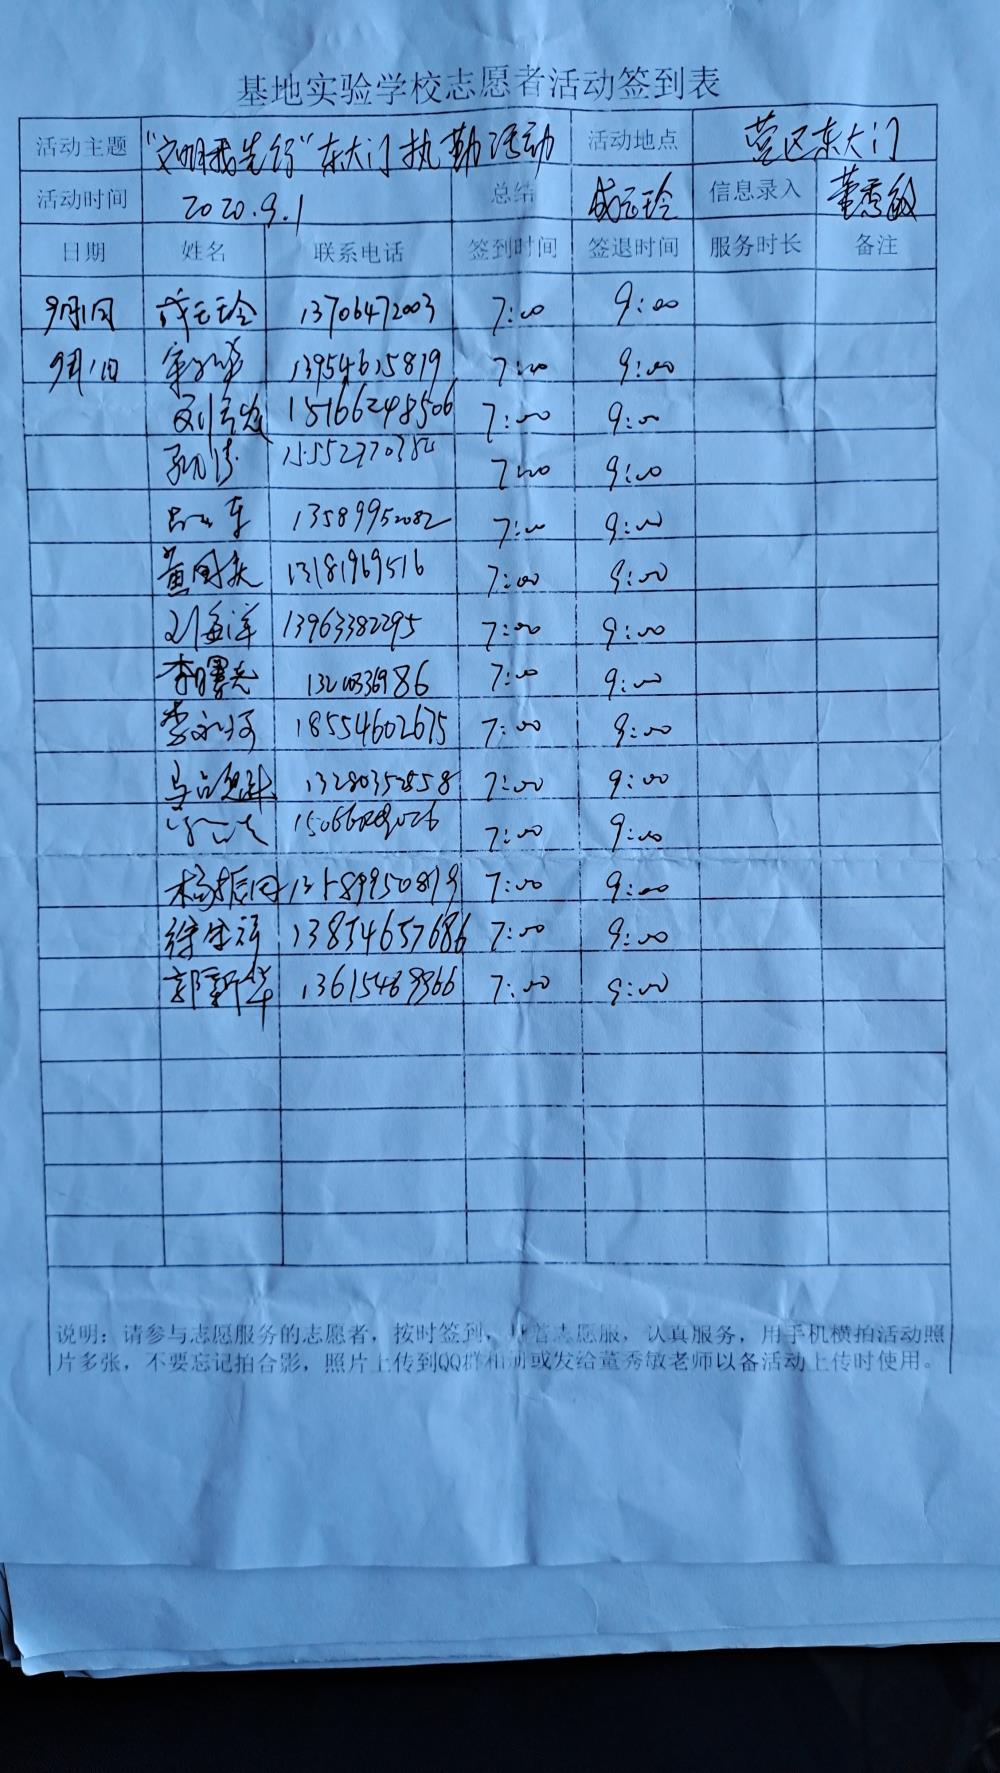 基地实验学校志愿者活动签到表
活动主题 "文明我先行"东大门执勤活动 活动地点 营区东大门
活动时间 2020.9.1 总结 成元玲 信息录入 董秀敏
日期 姓名 联系电话 签到时间 签退时间 服务时长 备注
9月1日 成元玲 13706472003 7:00 9:00
9月1日 13954615819 7:00 9:00
15166248506 7:00 9:00
7:00 9:00
13589952082 7:00 9:00
13181969516 7:00 9:00
刘海洋 13963382295 7:00 9:00
李曙光 7:00 9:00
李永河 18554602675 7:00 9:00
13280352858 7:00 9:00
7:00 9:00
杨振国 13589950819 7:00 9:00
徐生涛 13854657686 7:00 9:00
郭新华 7:00 9:00
说明：请参与志愿服务的志愿者，按时签到，着志愿服，认真服务，用手机横拍活动照
片多张，不要忘记拍合影，照片上传到QQ群相册或发给董秀敏老师以备活动上传时使用。